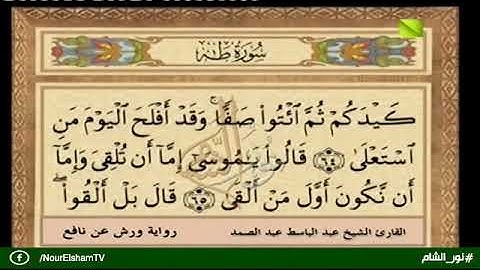 سُورَةُ طٰهٰ
كَيْدَكُمْ ثُمَّ ائْتُواْ صَفّاً وَقَدْ أَفْلَحَ اَلْيَوْمَ مَنِ
اِسْتَعْلَىٰ ٦٤ قَالُواْ يَٰمُوسَىٰ إِمَّا أَن تُلْقِىَ وَإِمَّا
أَن نَّكُونَ أَوَّلَ مَنْ أَلْقَىٰ ٦٥ قَالَ بَلْ أَلْقُواْ
القارئ الشيخ عبد الباسط عبد الصمد رواية ورش عن نافع
f /NourElshamTV #نور_الشام